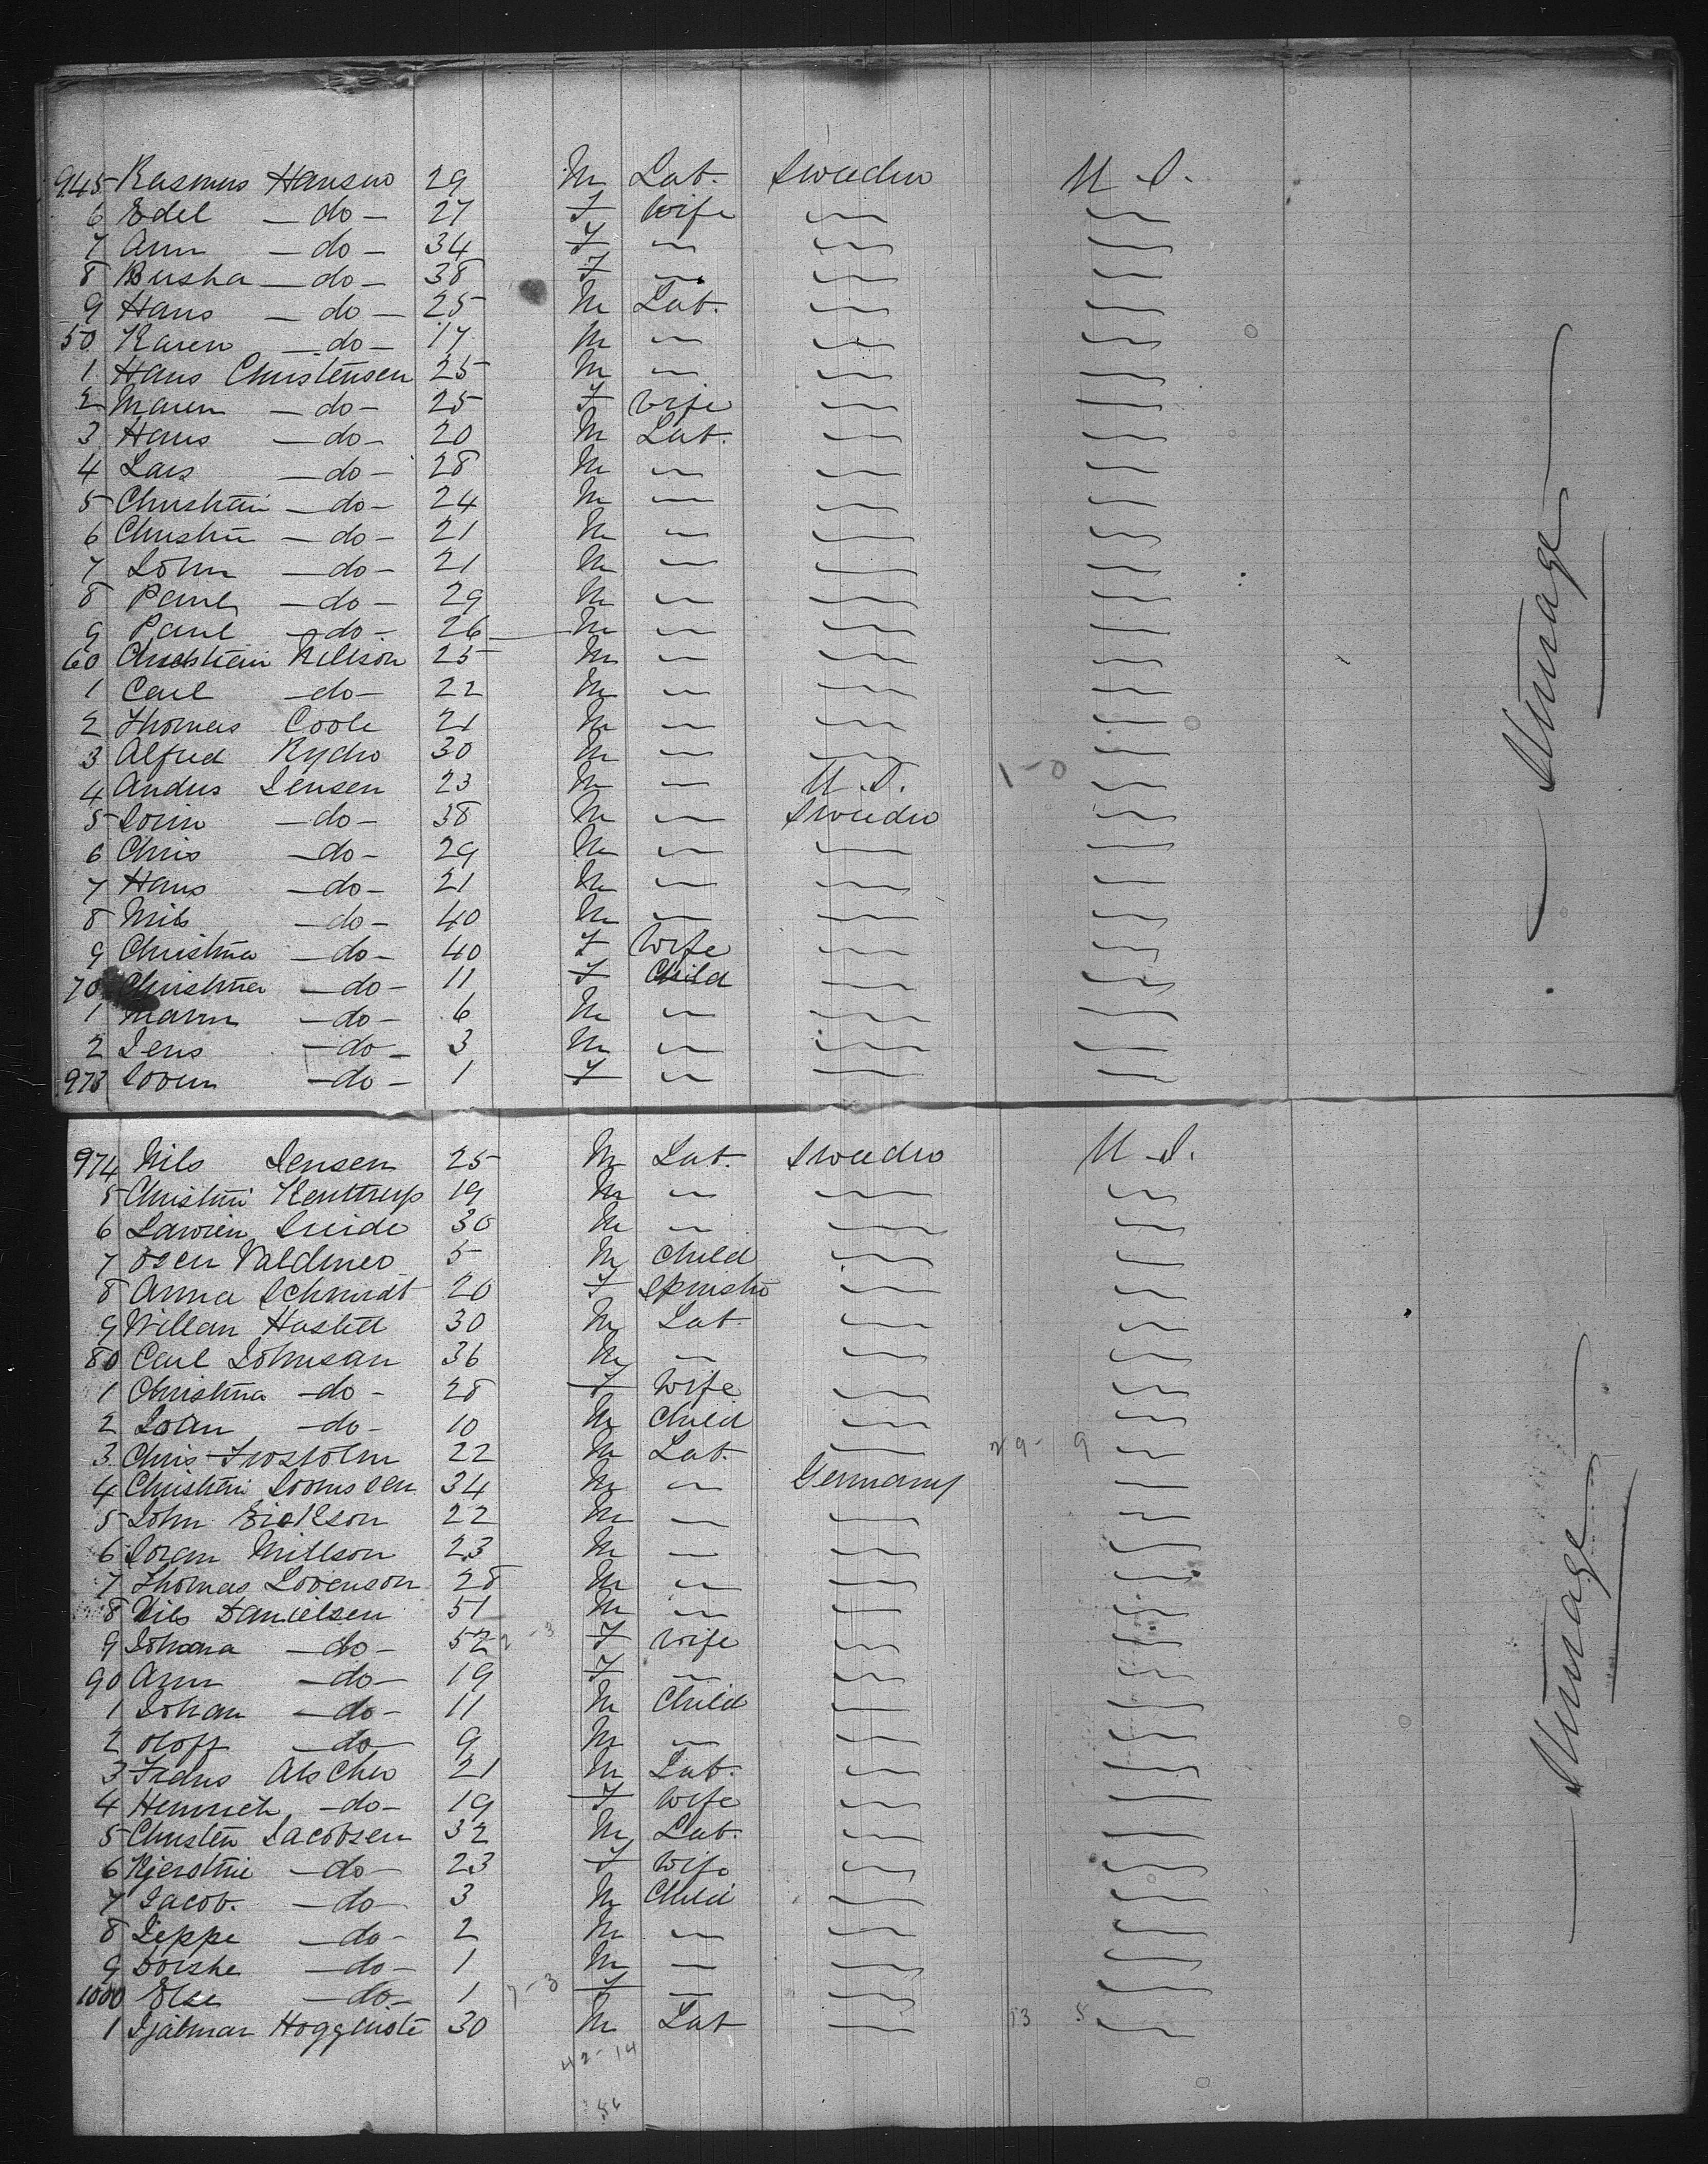 945 Rasmus Hansen 29 M Lab. Sweden U.S.
6 Edel — do — 27 F Wife
7 Ann — do — 34 F
8 Busha — do — 38 F
9 Hans — do — 25 M Lab.
50 Karen — do — 17 M
1 Hans Christensen 25 M
2 Maren — do — 25 F Wife
3 Hans — do — 20 M Lab.
4 Lars — do — 28 M
5 Christian — do — 24 M
6 Christin — do — 21 M
7 John — do — 21 M
8 Paul — do — 29 M
9 Paul — do — 26 M
60 Christian Nillson 25 M
1 Carl — do — 22 M
2 Thomas Coole 21 M
3 Alfred Rydin 30 M
4 Andus Jensen 23 M U.S. 1-0
5 Sorin — do — 38 M Sweden
6 Chris — do — 29 M
7 Hans — do — 21 M
8 Nils — do — 40 M
9 Christina — do — 40 F Wife
70 Christina — do — 11 F Child
1 Marin — do — 6 M
2 Jens — do — 3 M
973 Soren — do — 1 F
Steerage
974 Nils Jensen 25 M Lab. Sweden U.S.
5 Christin Kenttrup 19 M
6 30 M
7 Valdmer 5 M Child
8 Anna Schmidt 20 F Spinster
9 Willam 30 M Lab
80 Carl Johnsan 36 M
1 Christina — do — 28 F Wife
2 Joan — do — 10 M Child
3 Chris Frostolm 22 M Lab. 29-9
4 Christian 34 M Germany
5 John Erickson 22 M
6 Soran Millson 23 M
7 Thomas Sorenson 28 M
8 Nils Danielsen 51 M
9 Johana — do — 52 2-3 F Wife
90 Ann — do — 19 F
1 Johan — do — 11 M Child
2 Oloff — do — 9 M
3 21 M Lab.
4 Heinrich — do — 19 F Wife
5 Christen Jacobsen 32 M Lab.
6 Kjerstine — do — 23 F Wife
7 Jacob. — do — 3 M Child
8 Jeppe — do — 2 M
9 Dorshe — do — 1 M
1000 Else — do — 1 7-3 F
1 Hjalmar 30 M Lab 53 5
42-14
56
Steerage